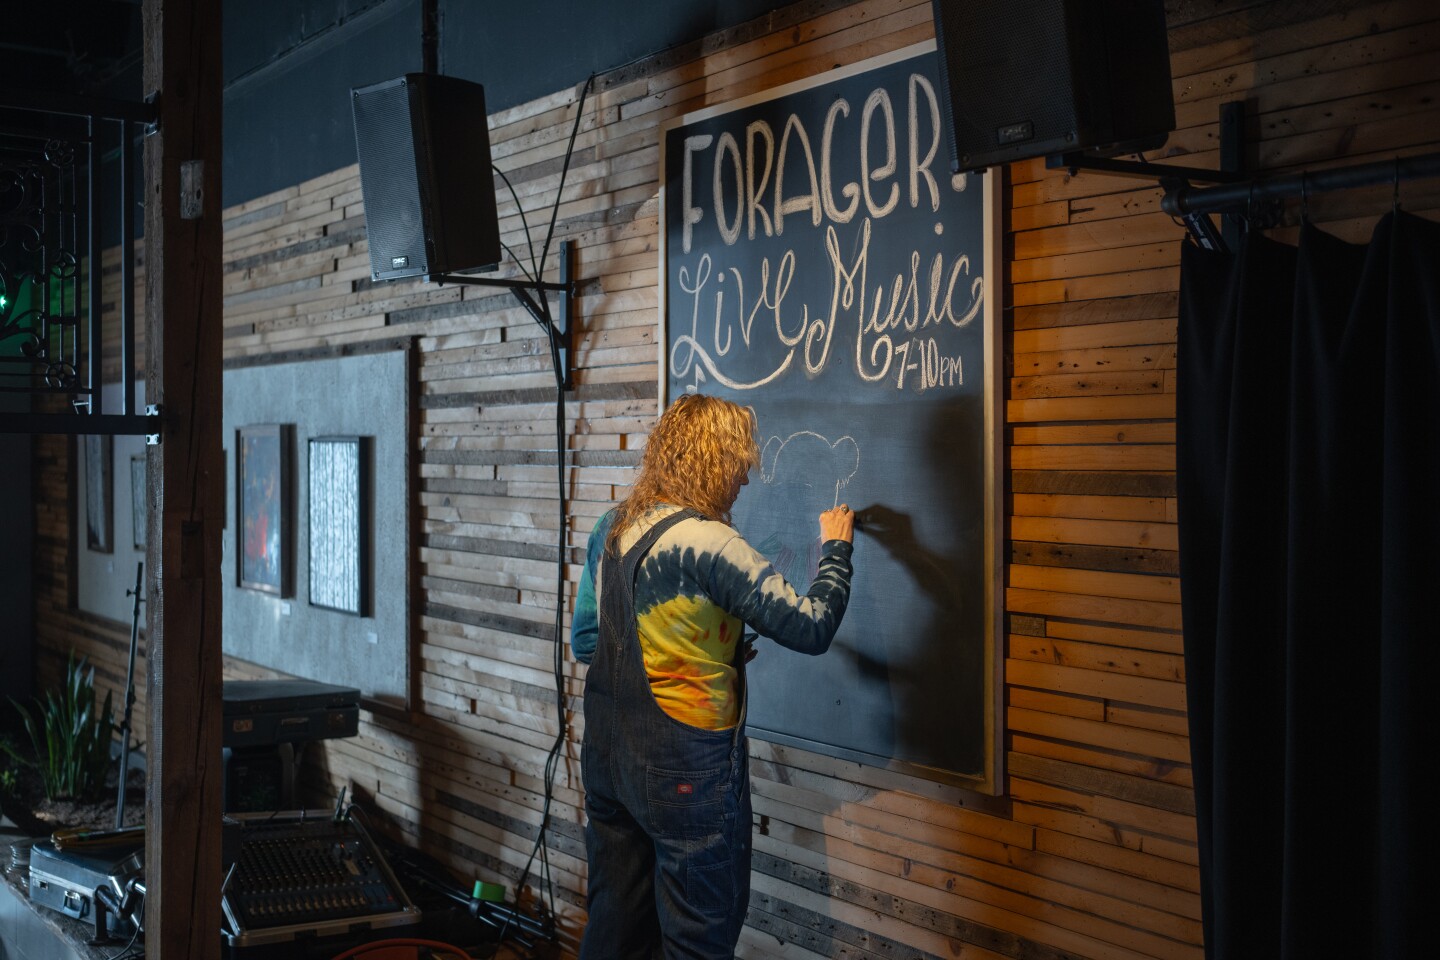 FORAGER!
Live Music
7-10PM